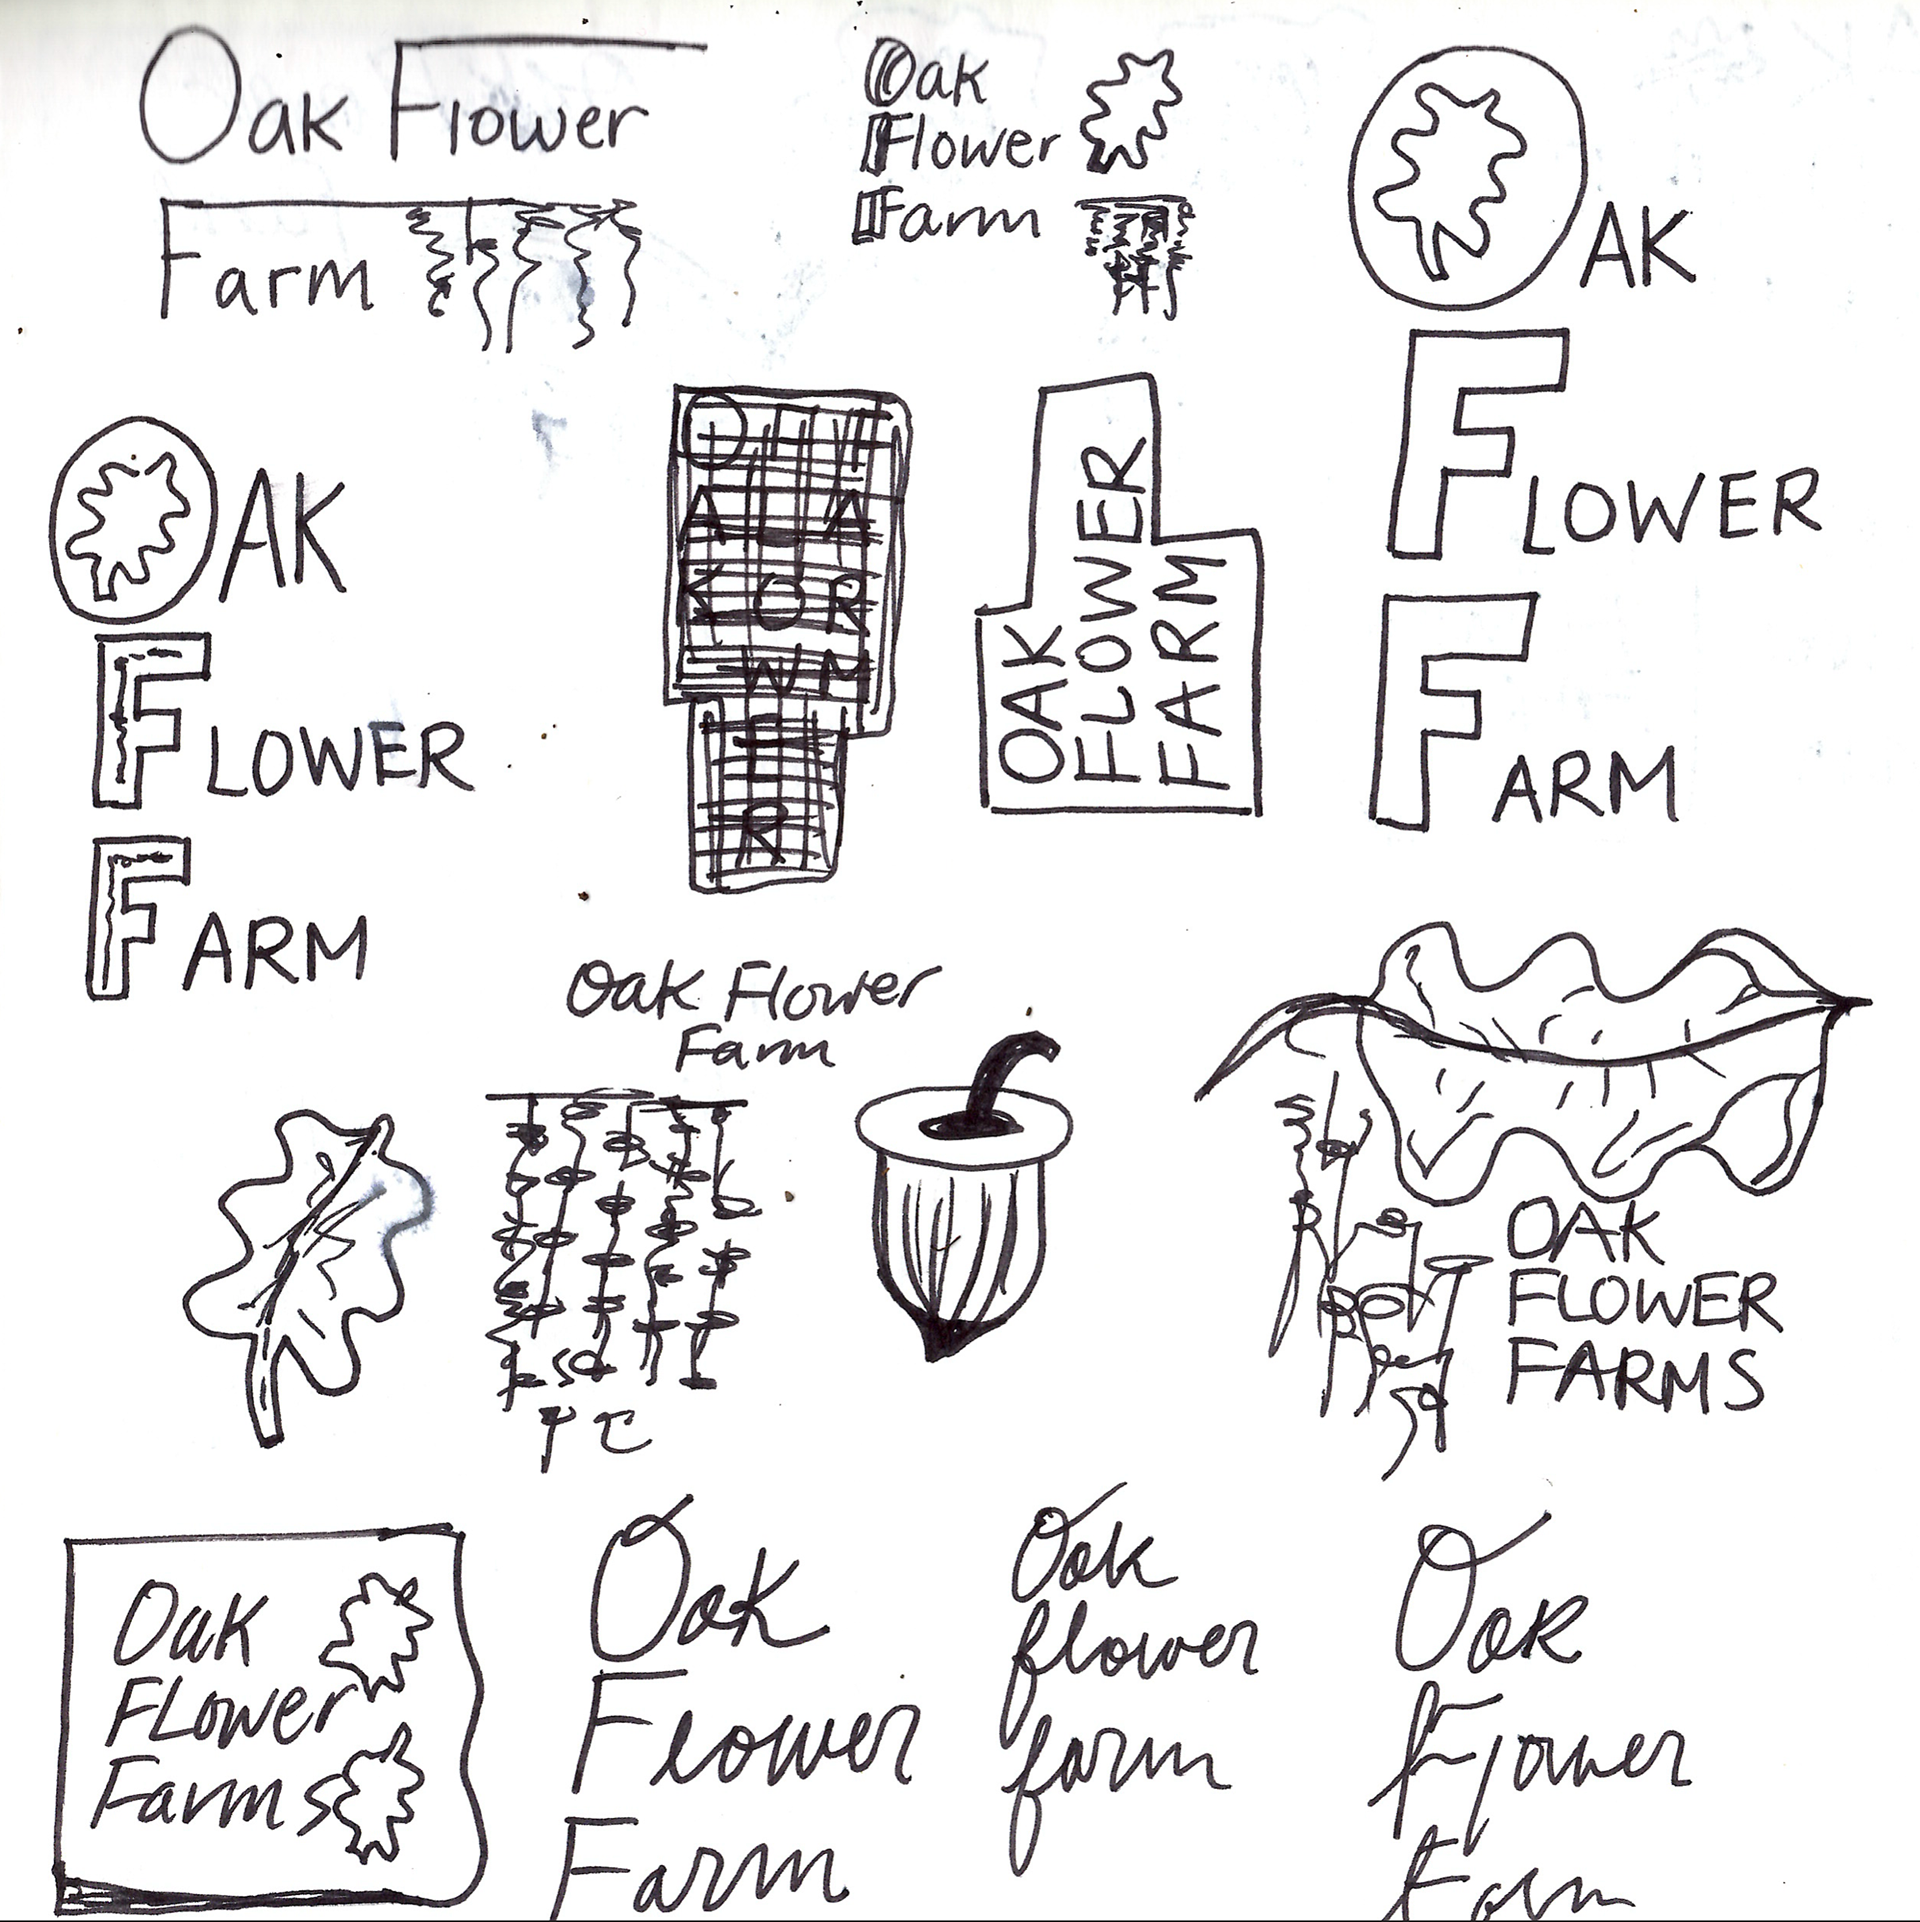 Oak Flower
Farm
Oak
Flower
Farm
OAK
FLOWER
FARM
OAK
FLOWER
FARM
OAK
FLOWER
FARM
OAK
FLOWER
FARM
Oak Flower
Farm
OAK
FLOWER
FARMS
Oak
FLower
Farms
Oak
Flower
Farm
Oak
flower
farm
Oak
Flower
Farm